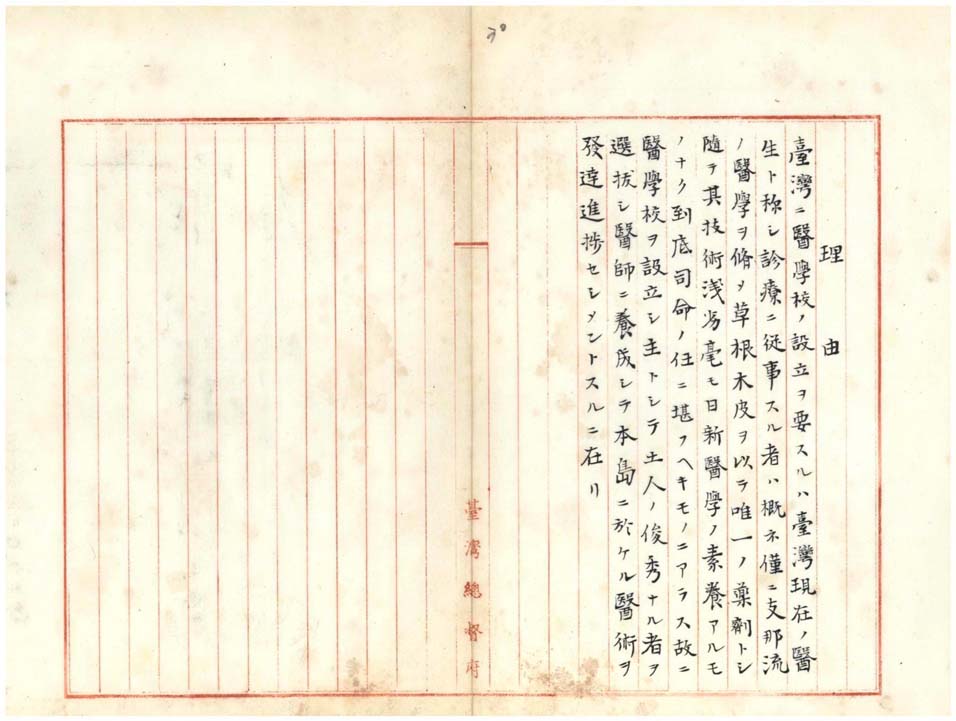 理由
臺灣ニ醫學校ノ設立ヲ要スルハ臺灣現在ノ醫
生ト称シ診療ニ従事スル者ハ概ネ僅ニ支那流
ノ醫學ヲ脩メ草根木皮ヲ以テ唯一ノ薬劑トシ
随テ其技術浅劣毫モ日新醫學ノ素養アルモ
ノナク到底司命ノ任ニ堪フヘキモノニアラス故ニ
醫學校ヲ設立シ主トシテ土人ノ俊秀ナル者ヲ
選拔シ醫師ニ養成シテ本島ニ於ケル醫術ヲ
發達進捗セシメントスルニ在リ
臺灣總督府